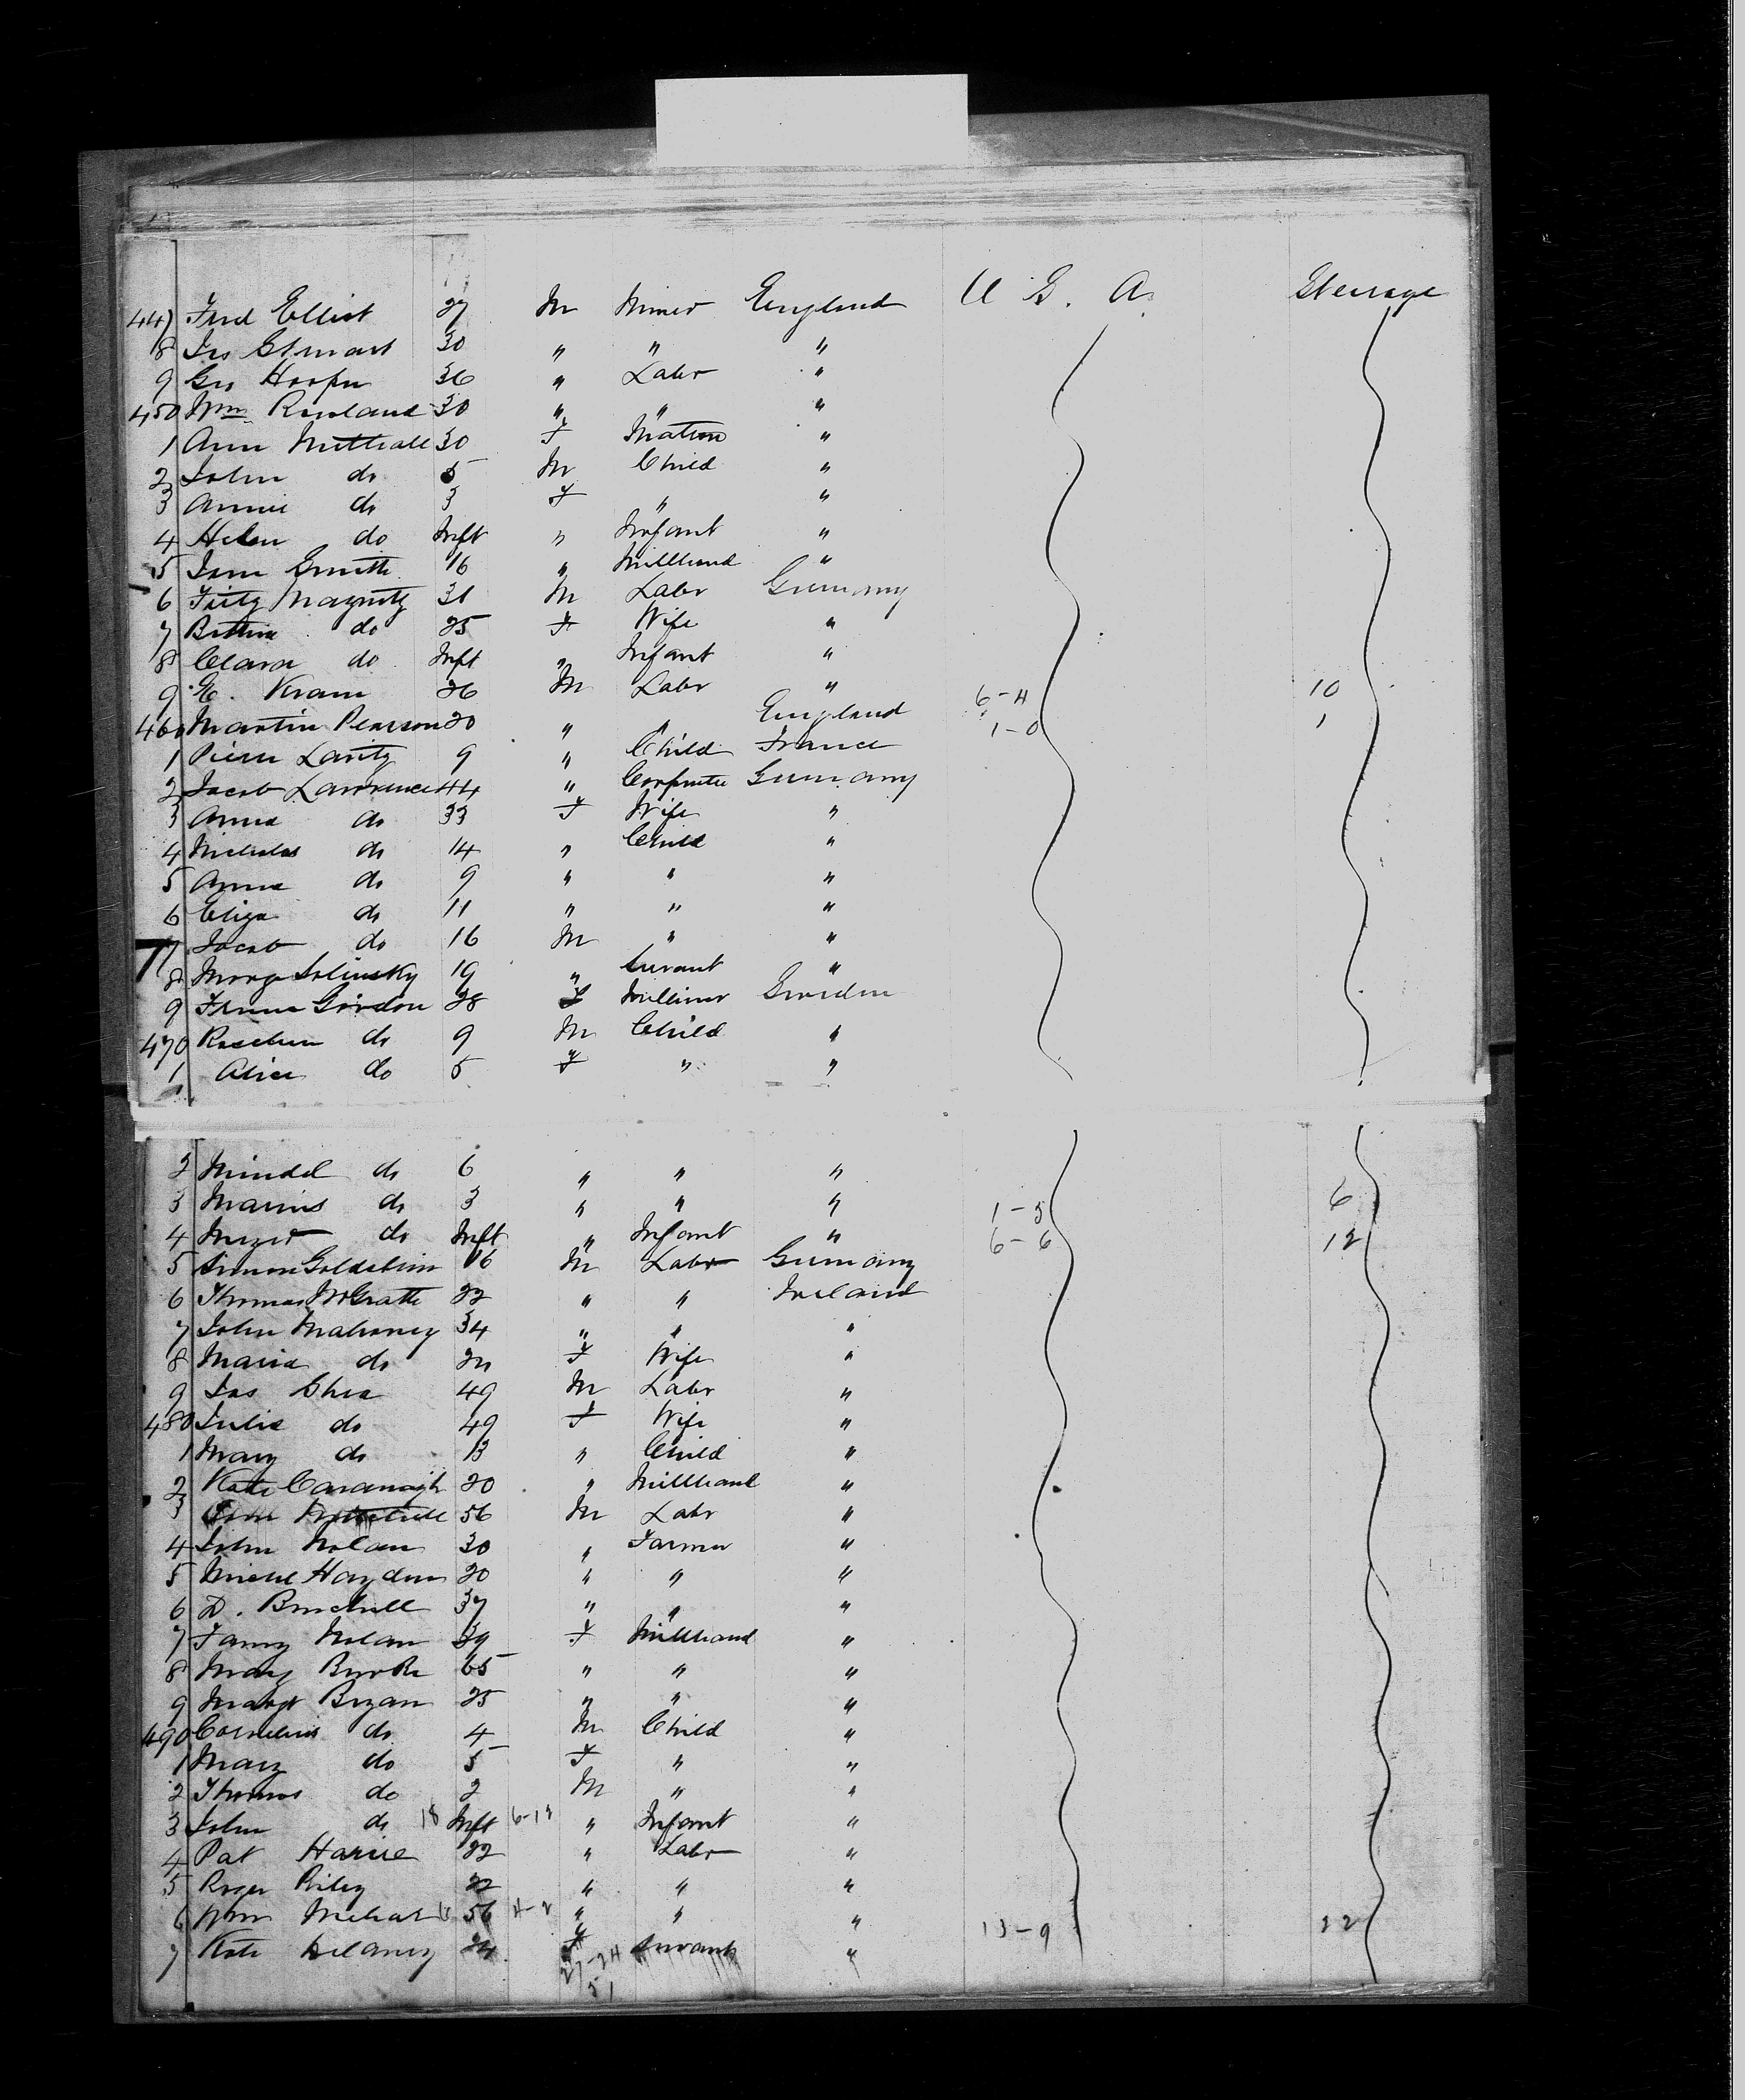 447 Fred Elliot 27 M Miner England U S. A. Steerage
8 Jas Stewart 30 " " "
9 Geo Hooper 36 " Labr "
450 Wm Rowland 30 " " "
1 Ann 30 F Matron "
2 John do 5 M Child "
3 Annie do 3 F " "
4 Helen do Inft " Infant "
5 Smith 16 " Millhand "
6 Fritz 31 M Labr Germany
7 do 25 F Wife "
8 Clara do Inft " Infant "
9 Kram 26 M Labr " 6-4 10
460 Martin Pearson 20 " " England 1-0 1
1 Pierre Lantz 9 " Child France
2 Jacob Lawrence 44 " Carpenter Germany
3 Anna do 33 F Wife "
4 Nicholas do 14 " Child "
5 Anna do 9 " " "
6 Eliza do 11 " " "
7 Jacob do 16 M " "
8 Solinsky 19 " Servant "
9 Gordon 28 F Milliner Sweden
470 do 9 M Child "
1 Alice do 5 F " "
2 Mindel do 6 " " "
3 Marius do 3 " " " 1-5 6
4 do Inft " Infant " 6-6 12
5 Simon Goldstein 16 M Labr Germany
6 Thomas McGrath 22 " " Ireland
7 John Mahoney 34 " " "
8 Maria do F Wife "
9 Jas Shea 49 M Labr "
480 Julia do 49 F Wife "
1 Mary do 13 " Child "
2 Kate Cavanagh 20 " Millhand "
3 56 M Labr "
4 John Nolan 30 " Farmer "
5 Hayden 20 " " "
6 D. Burchell 37 " " "
7 Fanny Nolan 39 F Millhand "
8 Mary Burke 65 " " "
9 Margt Bryan 25 " " "
490 Cornelius do 4 M Child "
1 Mary do 5 F " "
2 Thomas do 2 M " "
3 John do 18 Inft " Infant "
4 Pat 22 " Labr "
5 Roger Riley 22 " " "
6 Wm 56 " " " 13-9 22
7 Kate Delaney 24 F Servant "
27-24
51